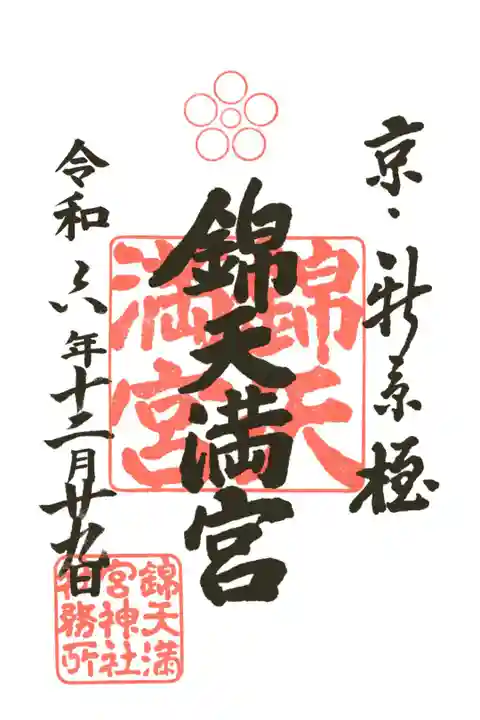 京・新京極
錦天満宮
錦天
満宮
令和六年十二月廿九日
錦天満
宮神社
社務所